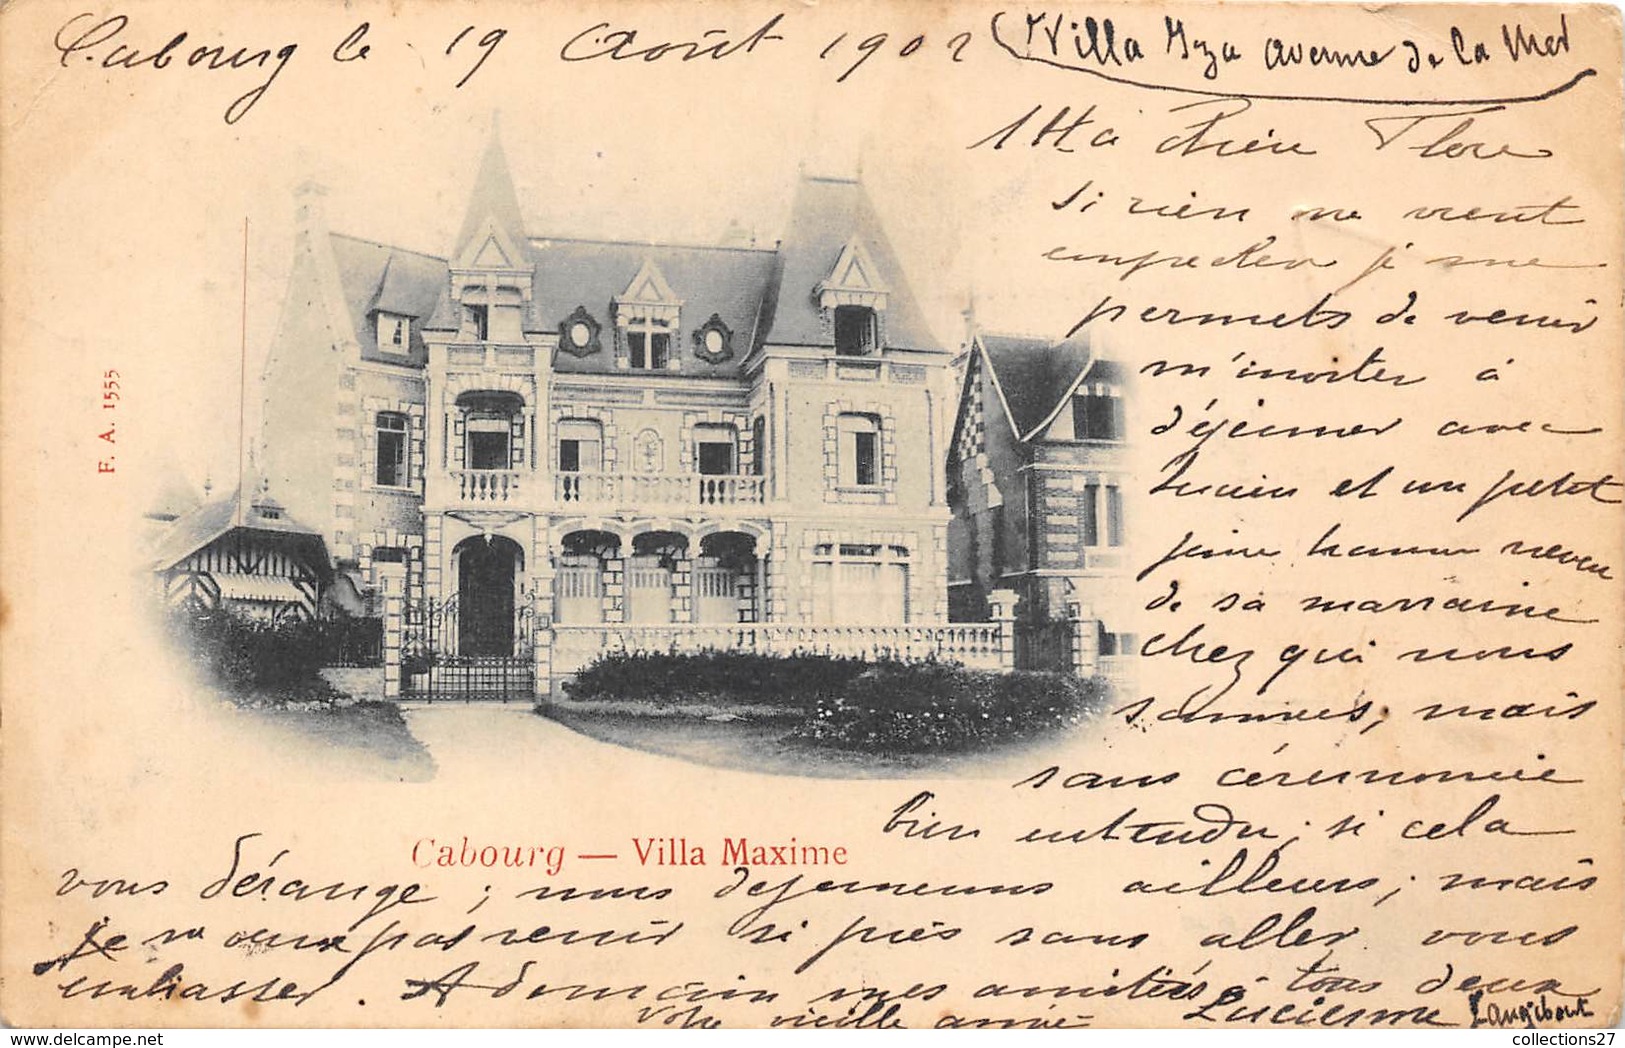 Cabourg le 19 Août 1902
Villa Yza avenue de la Mer
Ma chère Flore
si rien ne vient
empecher je me
permets de venir
m'inviter à
déjeuner avec
Lucien et un petit
jeune homme neveu
de sa marraine
chez qui nous
sommes; mais
sans cérémonie
bien entendu; si cela
vous dérange; nous dejeunerons ailleurs; mais
je ne veux pas venir si près sans aller vous
embrasser. A demain mes amitiés à tous deux
votre vieille amie Lucienne
F. A. 1555
Cabourg — Villa Maxime
collections27